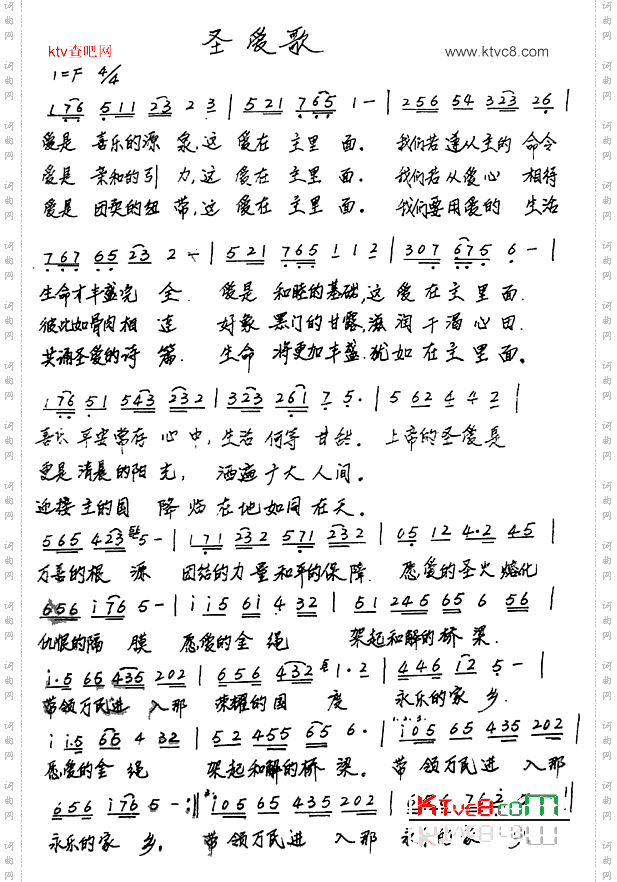 圣爱歌
ktv查吧网
www.ktvc8.com
1=F 4/4
1 7 6 5 1 1 2 3 2 3 | 5 2 1 7 6 5 1 - | 2 5 6 5 4 3 2 3 2 6 |
爱是 喜乐的源 泉,这 爱在 主里 面. 我们若遵从主的 命令
爱是 亲和的引 力,这 爱在 主里 面. 我们若从爱心 相待
爱是 团契的纽 带,这 爱在 主里 面. 我们要用爱的 生活
7 6 7 6 5 2 3 2 - | 5 2 1 7 6 5 1 1 2 | 3 0 7 6 7 5 6 - |
生命才丰盛完 全. 爱是 和睦的基础,这 爱在主里面.
彼此如骨肉相 连 好象 黑门的甘露,滋润干渴心田.
共诵圣爱的诗 篇. 生命 将更加丰盛.犹如在主里面。
1 7 6 5 1 5 4 3 2 3 2 | 3 2 3 2 6 1 7 5 · | 5 6 2 4 4 2 |
喜乐 平安常存 心中,生活 何等 甘甜. 上帝的圣爱是
更是 清晨的阳 光, 洒遍 十大 人间.
迎接 主的国 降临在地如同在天.
5 6 5 4 2 3 5 - | 1 7 1 2 3 2 5 7 1 2 3 2 | 0 5 1 2 4 · 2 4 5 |
万善的根 源 团结的力量和平的保障. 愿爱的圣火 熔化
6 5 6 i 7 6 5 - | i i 5 6 i 4 3 2 | 5 1 2 4 5 6 5 6 5 6 |
仇恨的隔 膜 愿爱的金 绳 架起和解的桥 梁.
i · 5 6 5 4 3 5 2 0 2 | 6 5 6 4 3 2 1 · 2 | 4 4 6 i 2 5 - |
带领万民进 入那 荣耀的国 度 永乐的家 乡.
i i 5 6 5 4 3 2 | 5 2 4 5 5 6 5 6 · | i 0 5 6 5 4 3 5 2 0 2 |
愿爱的金 绳 架起和解的桥 梁. 带 领万民进 入那
6 5 6 i 7 6 5 - :| i 0 5 6 5 4 3 5 2 0 2 | 6 5 6 7 6 2 5 - |
永乐的家 乡. 带 领万民进 入那 永乐的家 乡
KTvc8.com
词曲网